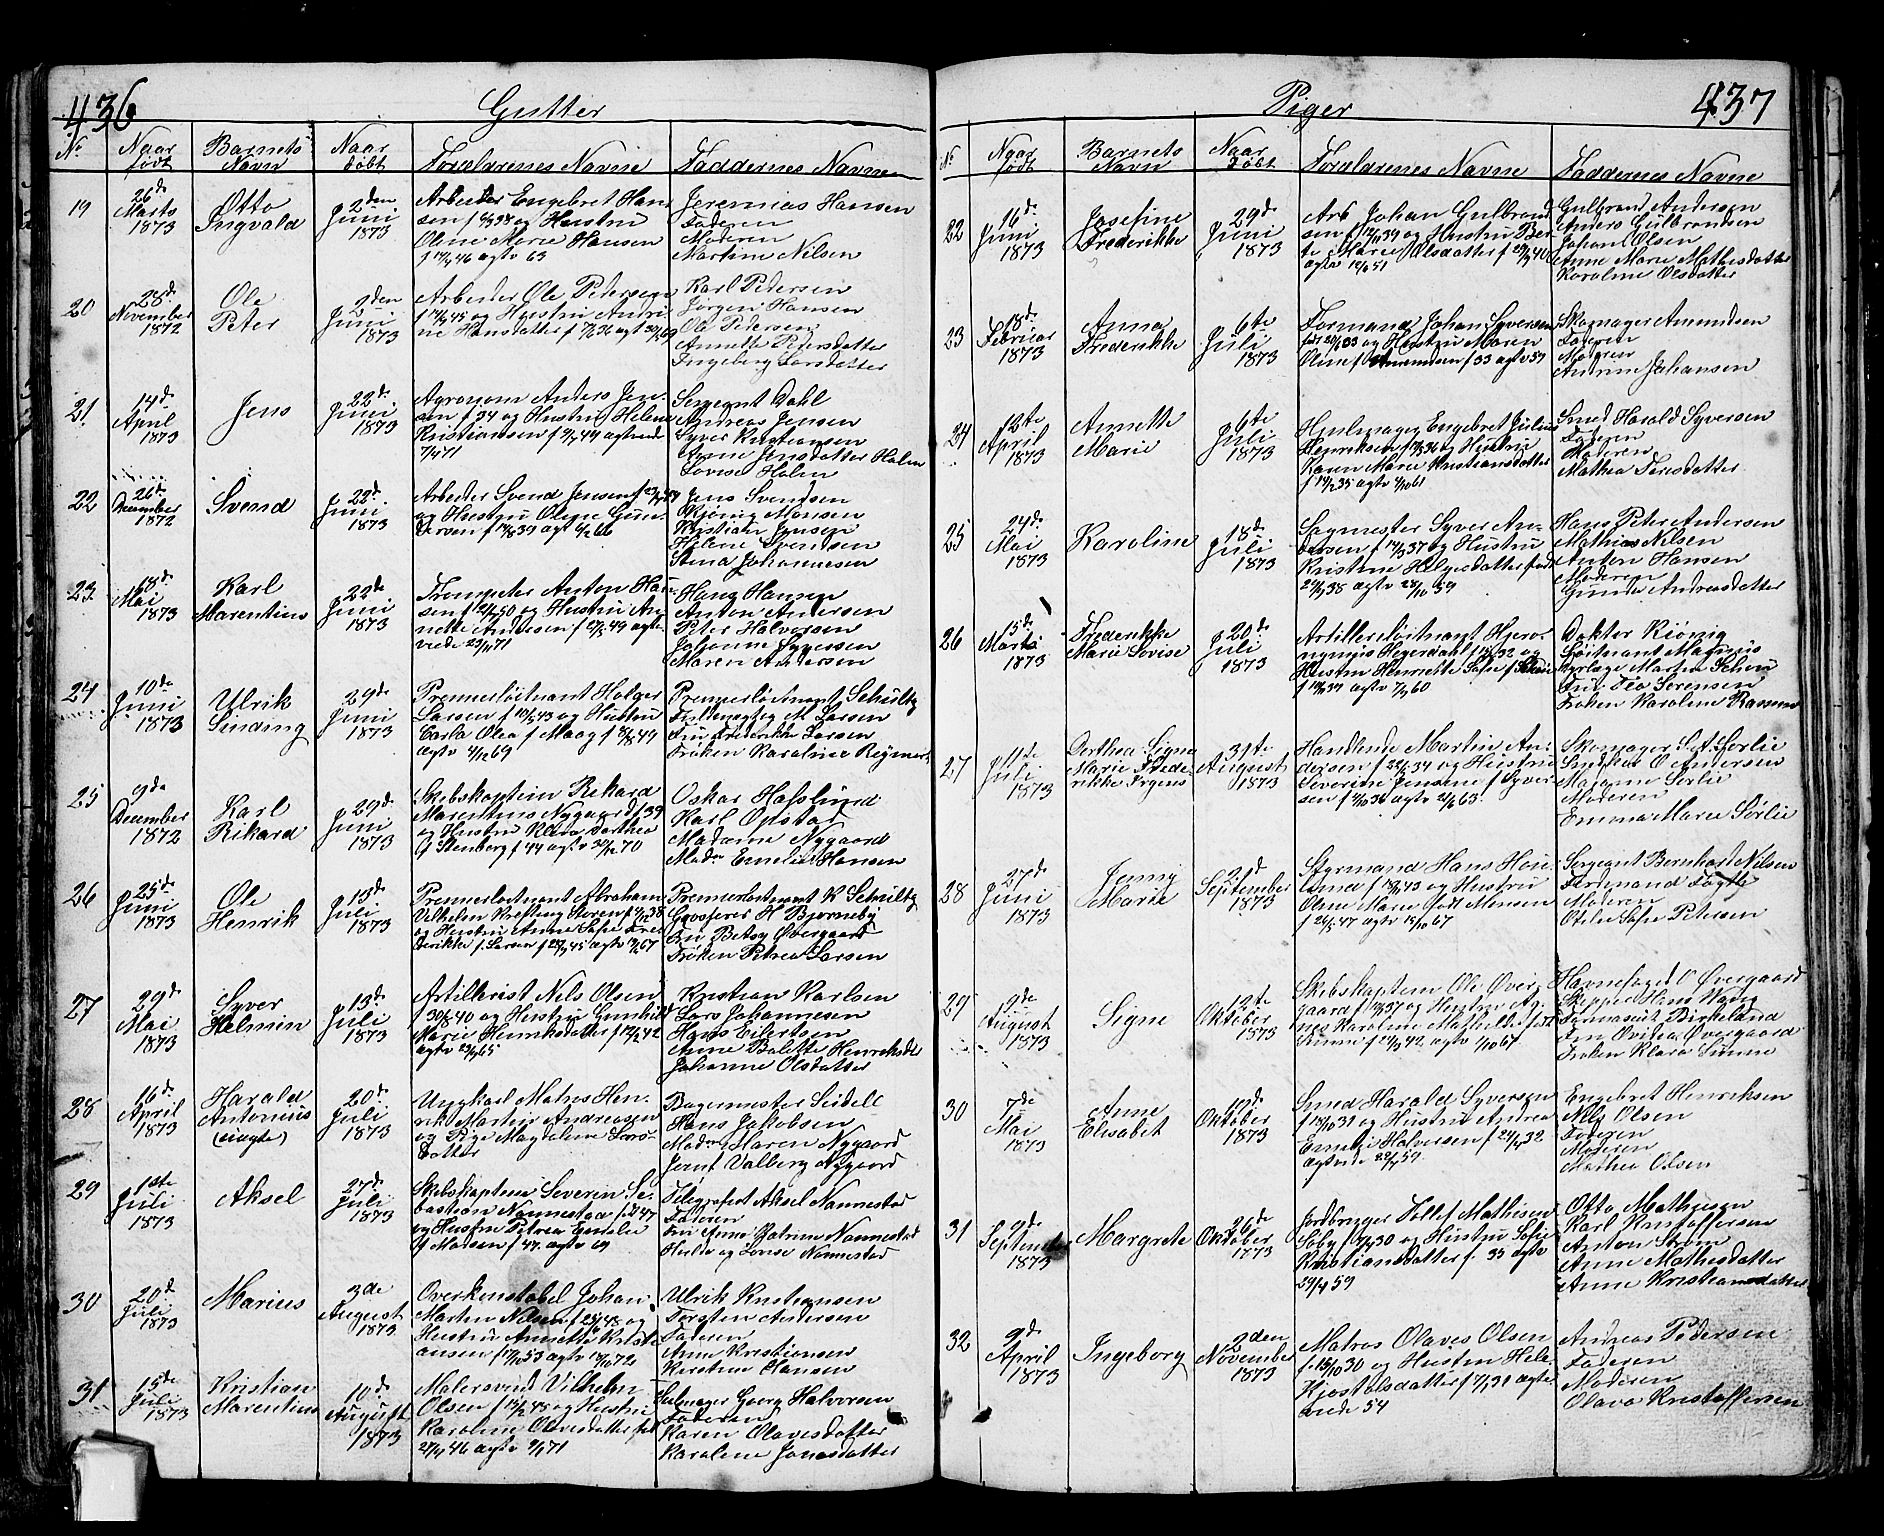 436
Gutter
No
Naar født
Barnets Navn
Naar døbt
Forældrenes Navne
Faddernes Navne
19
26de Marts 1873
Otto Ingvald
2den Juni 1873
Arbeider Engebret Han-
sen f. og Hustru
Oline Marie Hansen
f 46 agtv 63
Jeremias Hansen
Faderen
Moderen
Martine Nilsen
20
28de November 1872
Ole Peter
2den Juni 1873
Arbeider Ole Pedersen
f 45 og Hustru Andri-
ne Hansdatter f 36 agt
Karl Pedersen
Jørgen Hansen
Ole Pedersen
Annette Pedersdatter
Ingeborg Larsdatter
21
14de April 1873
Jens
22de Juni 1873
Agronom Anders Jen-
sen f. 34 og Hustru Helene
Kristiansen f 49 agtvede
71
Sergeant Dahl
Andreas Jensen
Syver Kristiansen
Anne Jensdatter Holm
Lovise Holm
22
26de December 1872
Svend
22de Juni 1873
Arbeider Svend Jensen f
og Hustru Oline Gun-
dersen f 39 agt 66
Jens Svendsen
Kristian Jensen
Helene Svendsen
Stina Johannesen
23
18de Mai 1873
Karl Marentius
22de Juni 1873
Trompeter Anton Han-
sen f 50 og Hustru An-
nette Andersen f 49 agte-
viede 71
Hans Hansen
Anton Andersen
Peter Halvorsen
Maren Andersen
24
10de Juni 1873
Ulrik Sinding
29de Juni 1873
Premierløitnant Holger
Larsen f 43 og Hustru
Carla Olea f Maag f 49
agtv 69
Premierløitnant Schultz
Fuldmægtig M Larsen
Fru Frederikke Larsen
Frøken Karoline Reymert
25
9de December 1872
Karl Rikard
29de Juni 1873
Skibskaptein Rikard
Marentius Nygaard f 39
og Hustru Klara Dorthea
Stenberg f 44 agtv 70
Oskar Hasslund
Karl Opstad
Madame Nygaard
Mad. Emelie Hansen
26
25de Juni 1873
Ole Henrik
13de Juli 1873
Premierløitnant Abraham
Vilhelm Krefting Storen f 38
og Hustru Anne Sofie Fred-
derikke f. Larsen f 45 agtv 67
Premierløitnant K Schultz
Grosserer H Bjørneby
Fru Betsy Øvergaard
Frøken Petrea Larsen
27
29de Mai 1873
Syver Helmin
13de Juli 1873
Artillerist Nels Olsen
f 40 og Hustru Gunhild
Marie Henriksdatter f 42
agtv 65
Kristian Karlsen
Lars Johannesen
Hans Eilertsen
Anne Bolette Henriksdt
Johanne Olsdatter
28
16de April 1873
Harald Antonius (uægte)
20de Juli 1873
Ungkarl Mathis Hen-
rik Martin Andreasen
og Pige Magdalene Lars-
datter
Bagermester Seidell
Hans Jakobsen
Mad. Maren Nygaard
Jomf Valberg Nygaard
29
1ste Juli 1873
Aksel
27de Juli 1873
Skibskaptein Severin Se-
bastian Nannestad f 47
og Hustru Petrea Emelie
f Madsen f 47. agtv 69
Telegrafist Aksel Nannestad
Faderen
Fru Anne Katrine Nannestad
Hulda og Lovise Nannestad
30
20de Juli 1873
Marius
3de August 1873
Overkonstabel Johan
Martin Nilsen f 48 og
Hustru Annette Kristi-
ansen f 53 agtv 72
Ulrik Kristiansen
Torsten Andersen
Faderen
Anne Kristiansen
Karstine Hansen
31
15de Juli 1873
Kristian Marentius
10de August 1873
Malersvend Vilhelm
Olsen f 48 og Hustru
Karoline Olavesdatter født
46 agtv 71
Hulmager Georg Halvorsen
Faderen
Karen Olavesdatter
Karoline Jonasdatter
437
Piger
No
Naar født
Barnets Navn
Naar døbt
Forældrenes Navne
Faddernes Navne
22
16de Juni 1873
Josefine Frederikke
29de Juni 1873
Arb Johan Gulbrand-
sen f 39 og Hustru Ber-
te Marie Olsdatter f 40
agtv 51
Gulbrand Andersen
Anders Gulbrandsen
Johan Olsen
Anne Marie Mathesdatter
Karoline Olsdatter
23
18de Februar 1873
Anna Frederikke
6te Juli 1873
Formand Johan Syversen
født 33 og Hustru Maren
Oline f Amundsen f 33 agtv 57
Skomager Amundsen
Faderen
Moderen
Andrine Johansen
24
12te April 1873
Annette Marie
6te Juli 1873
Hjulmager Engebret Julius
Henriksen f 36 og Hustru
Karen Marie Kristiansdatter
f 35 agtv 61
Smed Harald Syversen
Faderen
Moderen
Mathea Svensdatter
25
24de Mai 1873
Karoline
18de Juli 1873
Sagmester Syver An-
dersen f 37 og Hustru
Kristine Helgesdatter født
38 agtv 59
Hans Peter Andersen
Mathias Nelsen
Anton Hansen
Moderen
Gunda Andreasdatter
26
15de Marts 1873
Frederikke Marie Lovise
20de Juli 1873
Artilleriløitnant Hjero-
nymus Heyerdahl f 32 og
Hustru Henriette Sofie f
f 37 agtv 60
Doktor Kiønig
Løitnant Magnus
Fru Thea Sørensen
Frøken Karoline Rasmussen
27
11de Juli 1873
Dorthea Signe Marie Frede-
rikke Irgens
31te August 1873
Handlende Martin An-
dersen f 34 og Hustru
Severine Jensine f Syver-
sen f 36 agtv 63
Skomager Sørlie
Snedker O Andersen
Madame Sørlie
Moderen
Emma Marie Sørlie
28
27de Juni 1873
Jenny Marie
21de September 1873
Styrmand Hans Hou-
lund f 43 og Hustru
Oline Marie født Monsen
f 47 agtv 67
Sergeant Bernhart Nilsen
Ferdinand Fagtly
Moderen
Otilie Sofie Petersen
29
9de August 1873
Signe
12te Oktober 1873
Skibskaptein Ole Øver-
gaard f 37 og Hustru Ag-
nes Karoline Mathilde født
Simme f 42, agtv 67
Havnefoged O Øvergaard
Skipper Hans Høeg
Farmaseut Birkeland
Fru Ovidea Øvergaard
Frøken Klara Simme
30
7de Mai 1873
Anne Elisabet
19de Oktober 1873
Smed Harald Syversen
f 31 og Hustru Andrea
Emelie Halvorsen f 32
agtvede 59
Engebret Henriksen
Nils Olsen
Faderen
Moderen
Mathea Olsen
31
9de September 1873
Margrete
26de Oktober 1773
Jordbruger Tollef Mathisen
Soby f 30 og Hustru Sofie
Kristiansdatter f. 35 agtv
59
Otto Mathiesen
Karl Kristoffersen
Anton Strøm
Anne Mathisdatter
Anne Kristiansdatter
32
9de April 1873
Ingeborg
2den November 1873
Matros Olaves Olsen
f. 15/10 30 og Hustru Hele-
Kjostolsdatter f 31 agte-
viede 54
Andreas Pedersen
Faderen
Moderen
Olava Kristoffersen